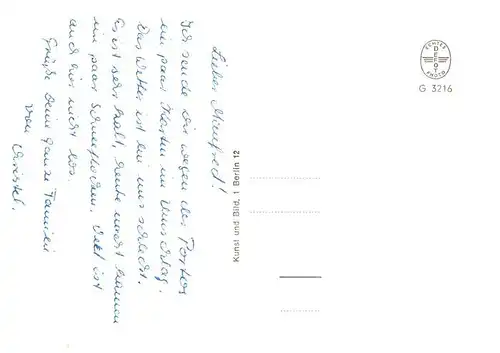 Lieber Manfred!
Ich sende dir wegen des Portos
ein paar Karten im Umschlag.
Das Wetter ist bei uns schlecht.
Es ist sehr kalt, heute nacht kamen
ein paar Schneeflocken. Jetzt ist
auch hier nicht los.
Grüße deine ganze Familie
von Christel.
Kunst und Bild, 1 Berlin 12
ECHTES
DEFOT
PHOTO
G 3216